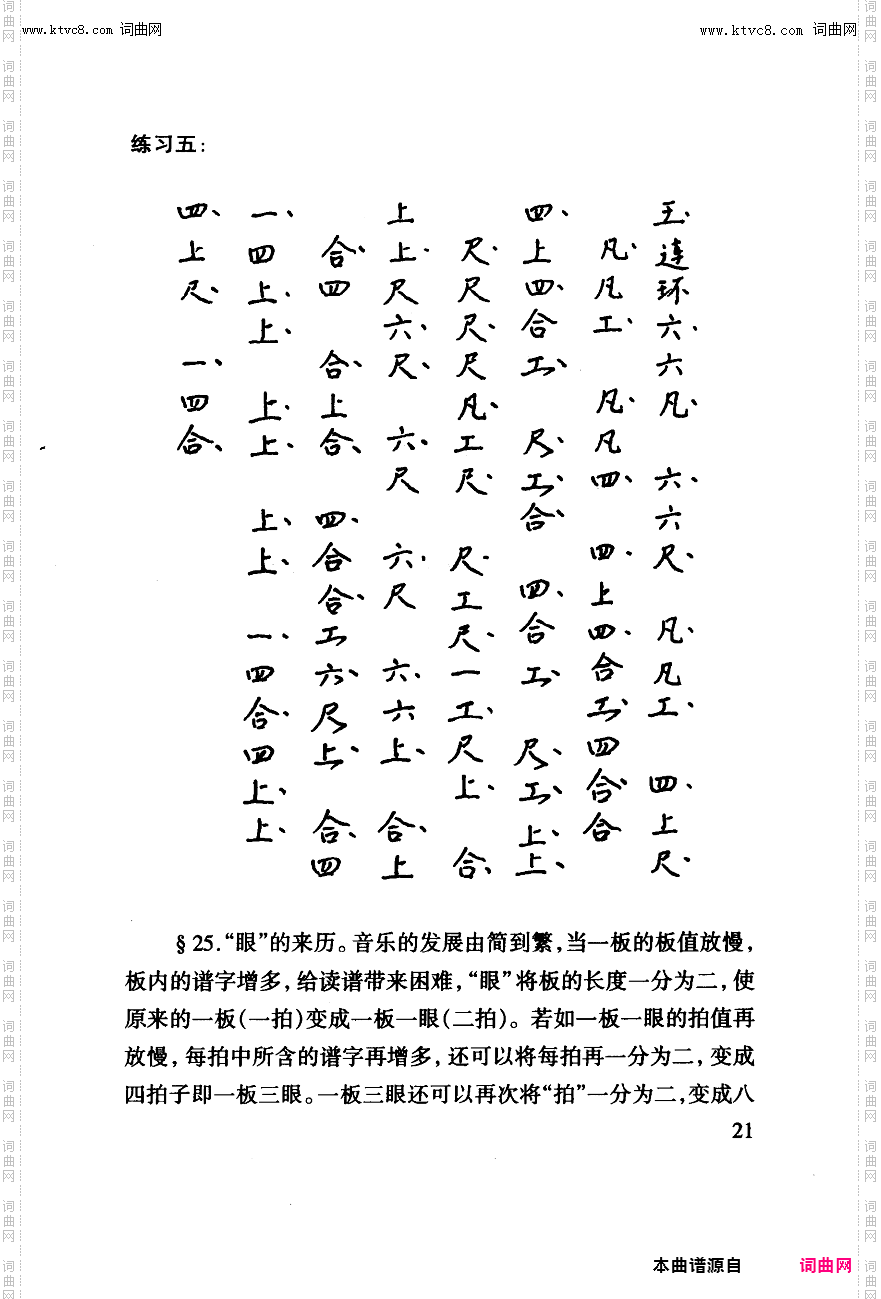 www.ktvc8.com 词曲网
www.ktvc8.com 词曲网
练习五：
玉连环 六、六 凡、 六、六 尺、 凡、凡 工、 四、上 尺、
凡、凡 工、 凡、凡 四、 四、上 四、合 工、四 合、合
四、上 四、合 工、 尺、工、合、 四、合 工、 尺、工、上、上、
尺、尺 尺、尺 凡、工 尺、 尺、工 尺、一 工、尺 上、 合、
上 上、尺 六、尺、 六、尺 六、尺 六、六 上、 合、上
合、四 合、上 合、 四、合 合、工 六、尺 上、 合、四
一、四 上、上、 上、上、 上、上、 一、四 合、四 上、上、
四、上 尺、 一、四 合、
§25.“眼”的来历。音乐的发展由简到繁，当一板的板值放慢，
板内的谱字增多，给读谱带来困难，“眼”将板的长度一分为二，使
原来的一板(一拍)变成一板一眼(二拍)。若如一板一眼的拍值再
放慢，每拍中所含的谱字再增多，还可以将每拍再一分为二，变成
四拍子即一板三眼。一板三眼还可以再次将“拍”一分为二，变成八
21
本曲谱源自 词曲网